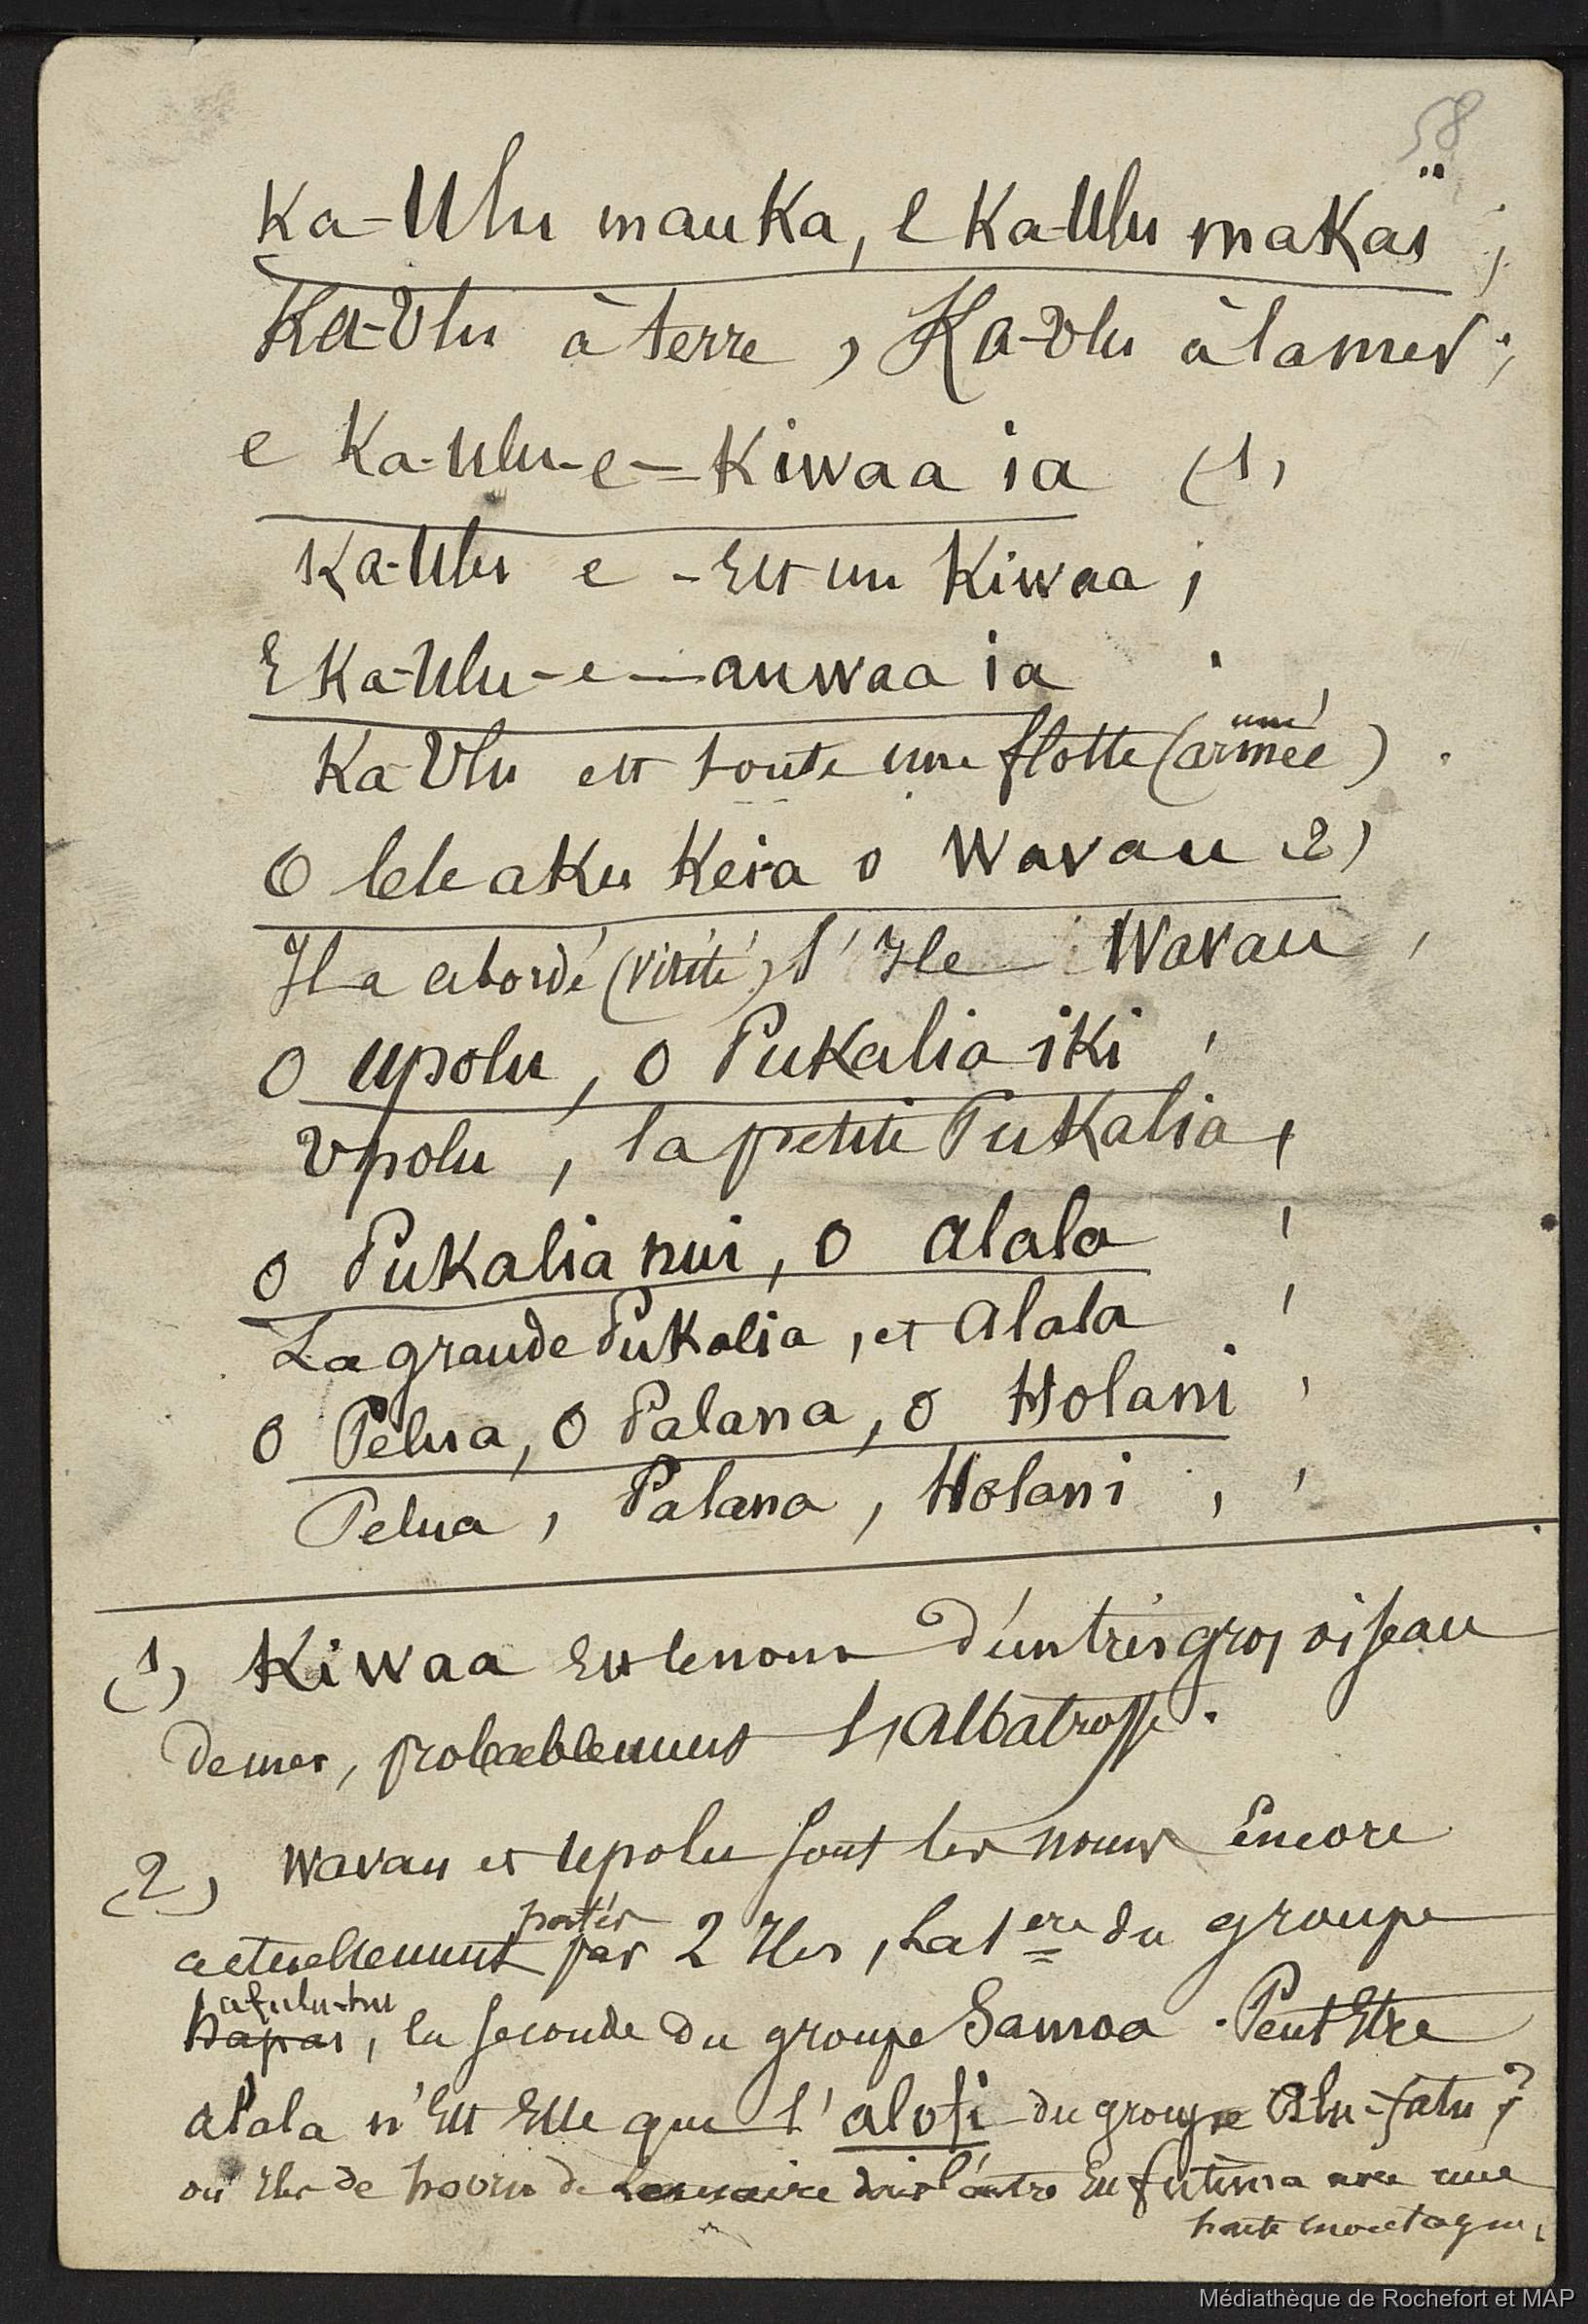 58
Ka-Ulu mauka, e Ka-Ulu makaï ;
Ka-Ulu à terre, Ka-Ulu à la mer ;
e Ka-Ulu-e-Kiwaa ia (1)
Ka-Ulu e - Est un Kiwaa ;
E Ka-Ulu-e-auwaa ia
Ka-Ulu est toute une flotte (armée)
O lele aku Keia o Wavau (2)
Il a abordé (visité) l'Ile Wavau,
O Upolu, O Pukalia iki,
Upolu, la petite Pukalia,
O Pukalia nui, O alala
La grande Pukalia, et alala
O Pelua, O Palana, O Holani,
Pelua, Palana, Holani,
(1) Kiwaa Est le nom d'un très gros oiseau
de mer, probablement l'Albatrosse.
(2) Wavau et Upolu sont les noms Encore
portés
actuellement par 2 Iles, La 1ere du groupe
Hapai, la seconde du groupe Samoa. Peut Etre
alala n'Est Elle que l'alofi du groupe Alu-fatu ?
ou Iles de hoorn de Lemaire dont l'autre Est futuna avec une
haute montagne.
Médiathèque de Rochefort et MAP